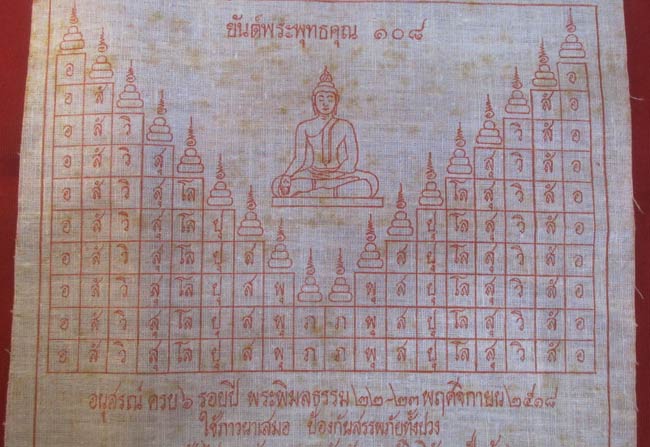 ยันต์พระพุทธคุณ ๑๐๘
อ อ
อ สั สั อ
อ สั วิ วิ สั อ
อ สั วิ สุ สุ วิ สั อ
อ สั วิ สุ โล โล สุ วิ สั อ
อ สั วิ สุ โล ปุ ปุ โล สุ วิ สั อ
อ สั วิ สุ โล ปุ ส ส ปุ โล สุ วิ สั อ
อ สั วิ สุ โล ปุ ส พุ พุ ส ปุ โล สุ วิ สั อ
อ สั วิ สุ โล ปุ ส พุ ภ ภ พุ ส ปุ โล สุ วิ สั อ
อ สั วิ สุ โล ปุ ส พุ ภ ภ พุ ส ปุ โล สุ วิ สั อ
อนุสรณ์ ครบ ๖ รอบปี พระพิมลธรรม ๒๒-๒๓ พฤศจิกายน ๒๕๑๘
ใช้ภาวนาเสมอ ป้องกันสรรพภัยทั้งปวง